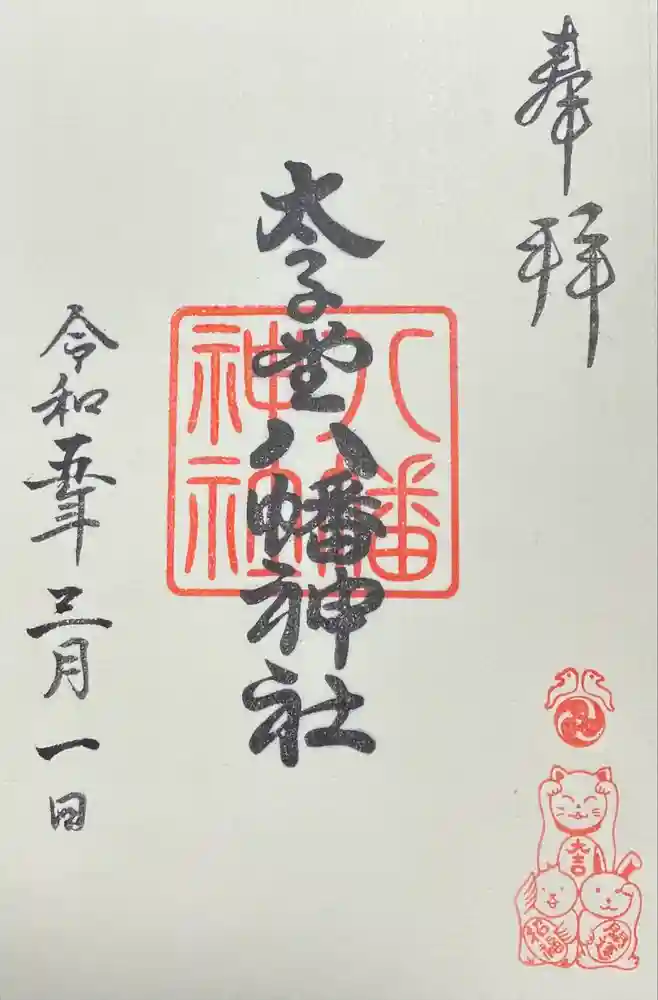 奉拝
太子堂八幡神社
八幡
神社
令和五年三月一日
大吉